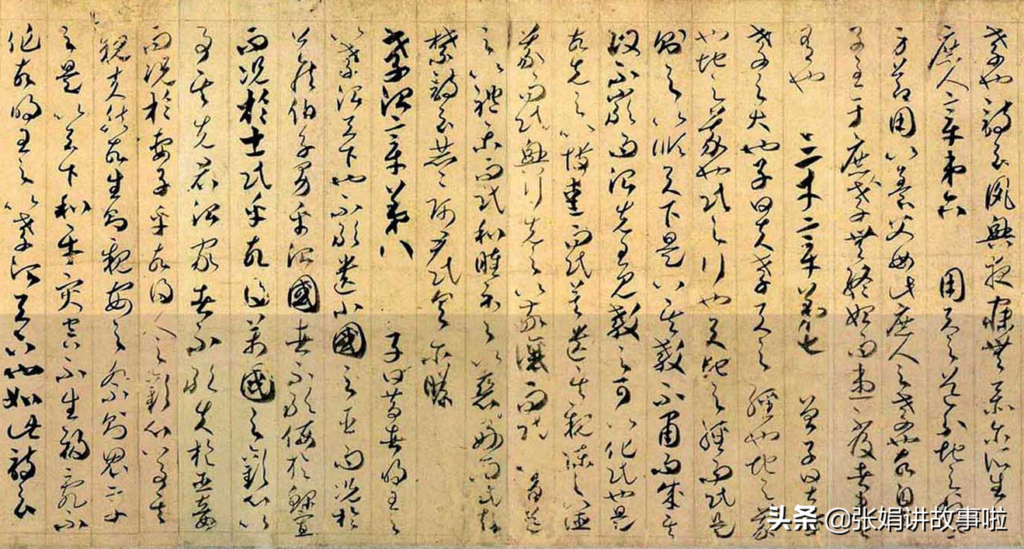 孝也詩云夙興夜寐無忝尒所生
庶人章第六 用天之道分地之利
身節用以養父母此庶人之孝也故自天
子至于庶人孝無終始而患不及者未
之有也 三才章第七 曾子曰甚哉
孝之大也子曰夫孝天之經也地之義
也地之義也民之行也天地之經而民是
則之以順天下是以其教不肅而成其
政不嚴而治先王見教之可以化民也是
故先之以博愛而民莫遺其親陳之以德
義而民興行先之以敬讓而民不爭導
之以禮樂而民和睦示之以好惡而民知
禁詩云赫赫師尹民具尒瞻
孝治章第八 子曰昔者明王之
以孝治天下也不敢遺小國之臣而況於
公侯伯子男乎治國者不敢侮於鰥寡
而況於士民乎故得萬國之歡心以
事其先君治家者不敢失於臣妾
而況於妻子乎故得人之歡心以事其
親夫然故生則親安之祭則鬼享
之是以天下和平灾害不生禍亂不
作故明王之以孝治天下也如此詩云
头条 @张娟讲故事啦